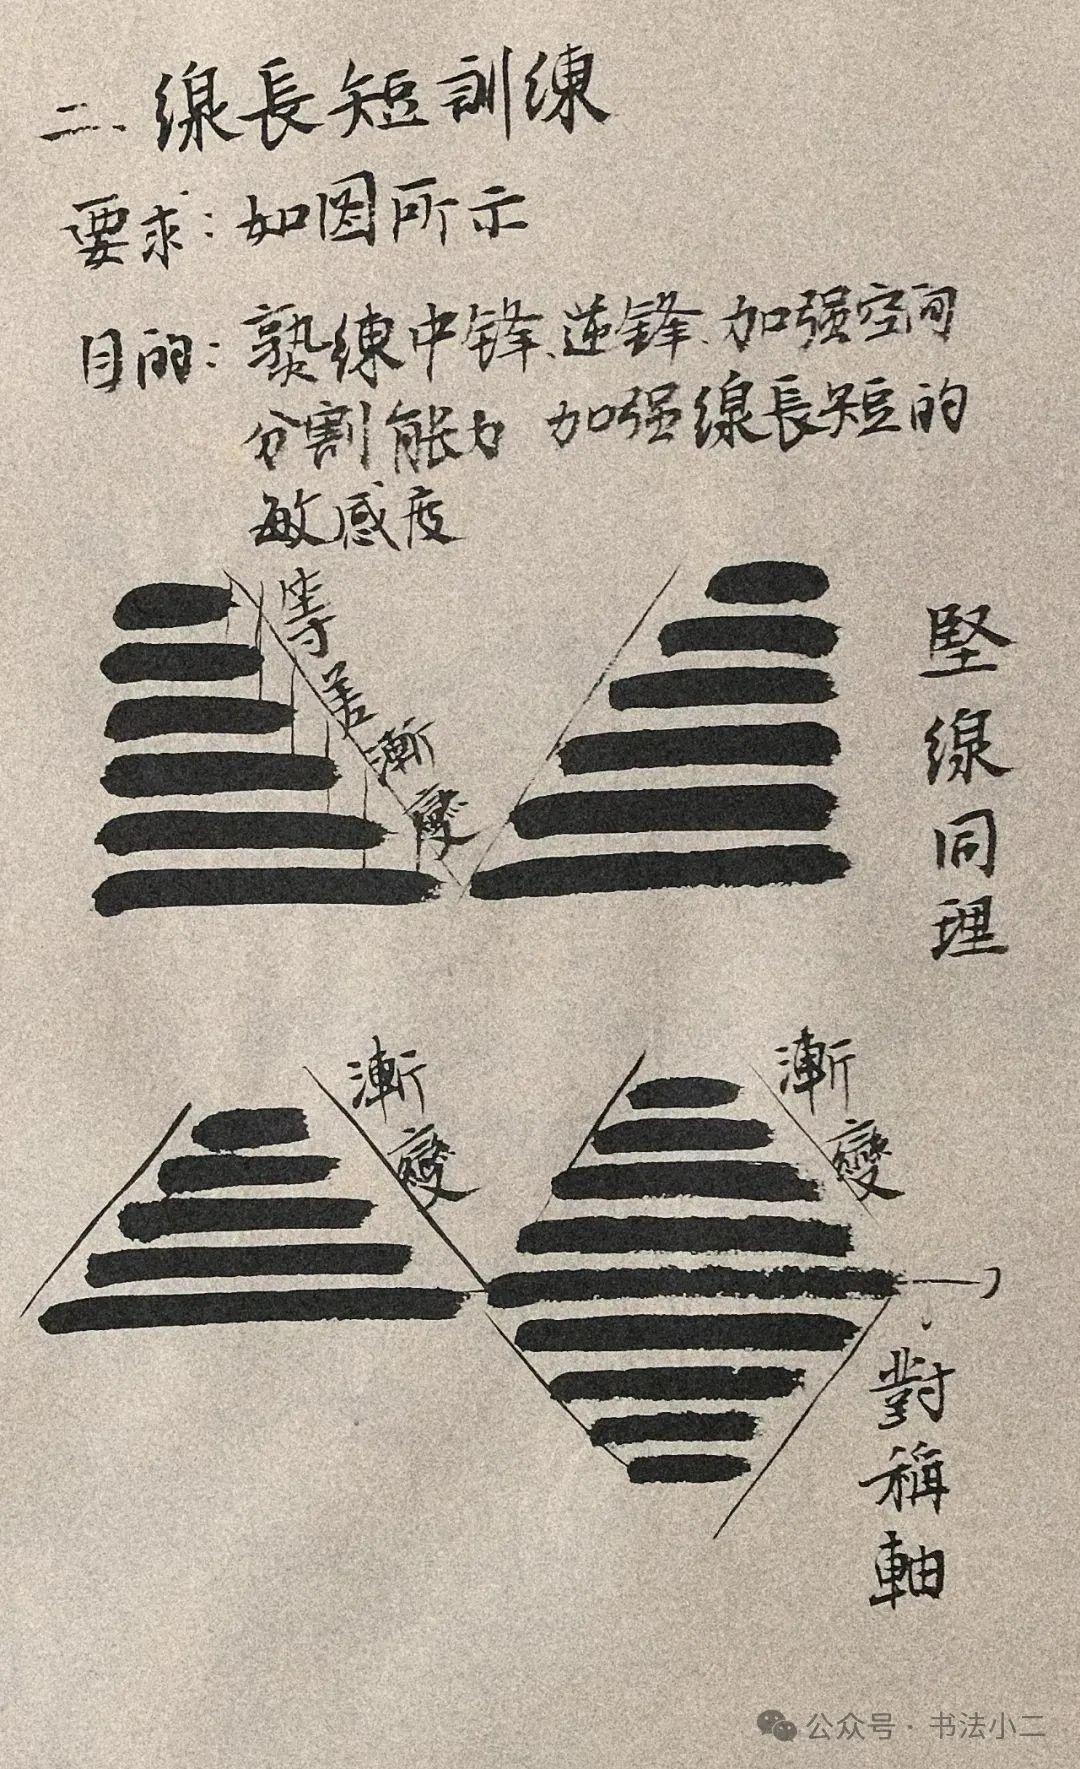 二、線長短訓練
要求：如图所示
目的：熟練中锋、逆锋、加强空间
分割能力 加强線長短的
敏感度
等差漸變
竖線同理
漸變
漸變
對稱軸
公众号·书法小二